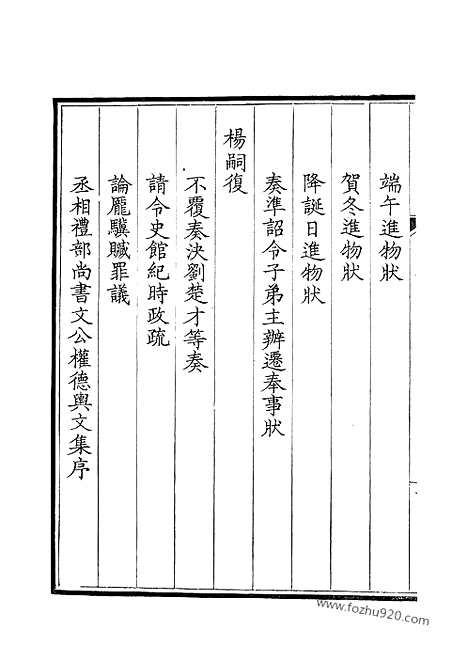 端午進物狀
賀冬進物狀
降誕日進物狀
奏準詔令子弟主辦遷奉事狀
楊嗣復
不覆奏決劉楚才等奏
請令史館紀時政疏
論龐驥贓罪議
丞相禮部尚書文公權德輿文集序
www.fozhu920.com